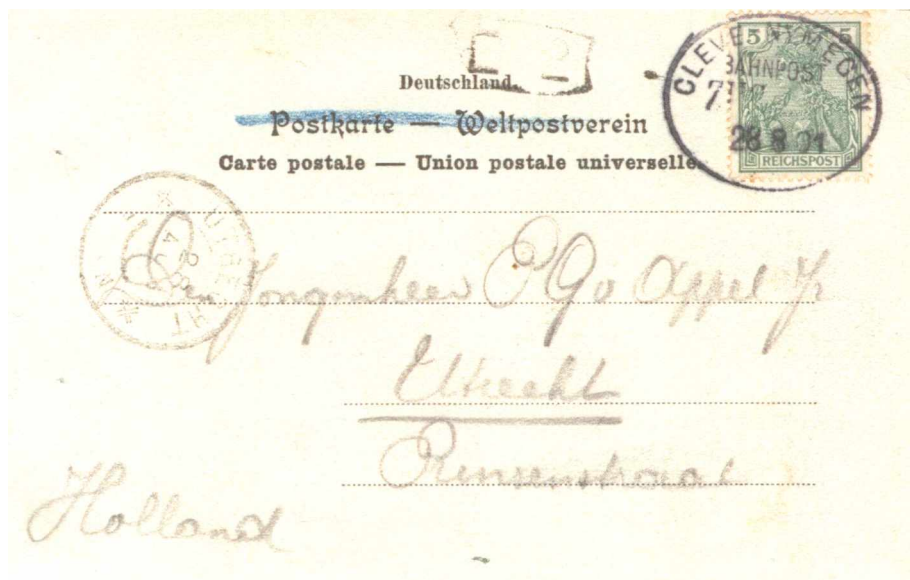 Deutschland.
Postkarte — Weltpostverein
Carte postale — Union postale universelle
5 5
REICHSPOST
CLEVE-NYMEGEN
BAHNPOST
28 8 01
UTRECHT
Den Jongenheer P Go Appel Jr
Utrecht
Holland